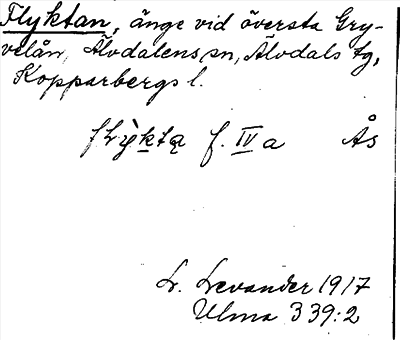 Flyktan, änge vid översta Gry-
velån, Älvdalens sn, Älvdals tg,
Kopparbergs l.
f. IV a Ås
L. Levander 1917
Ulma 339:2